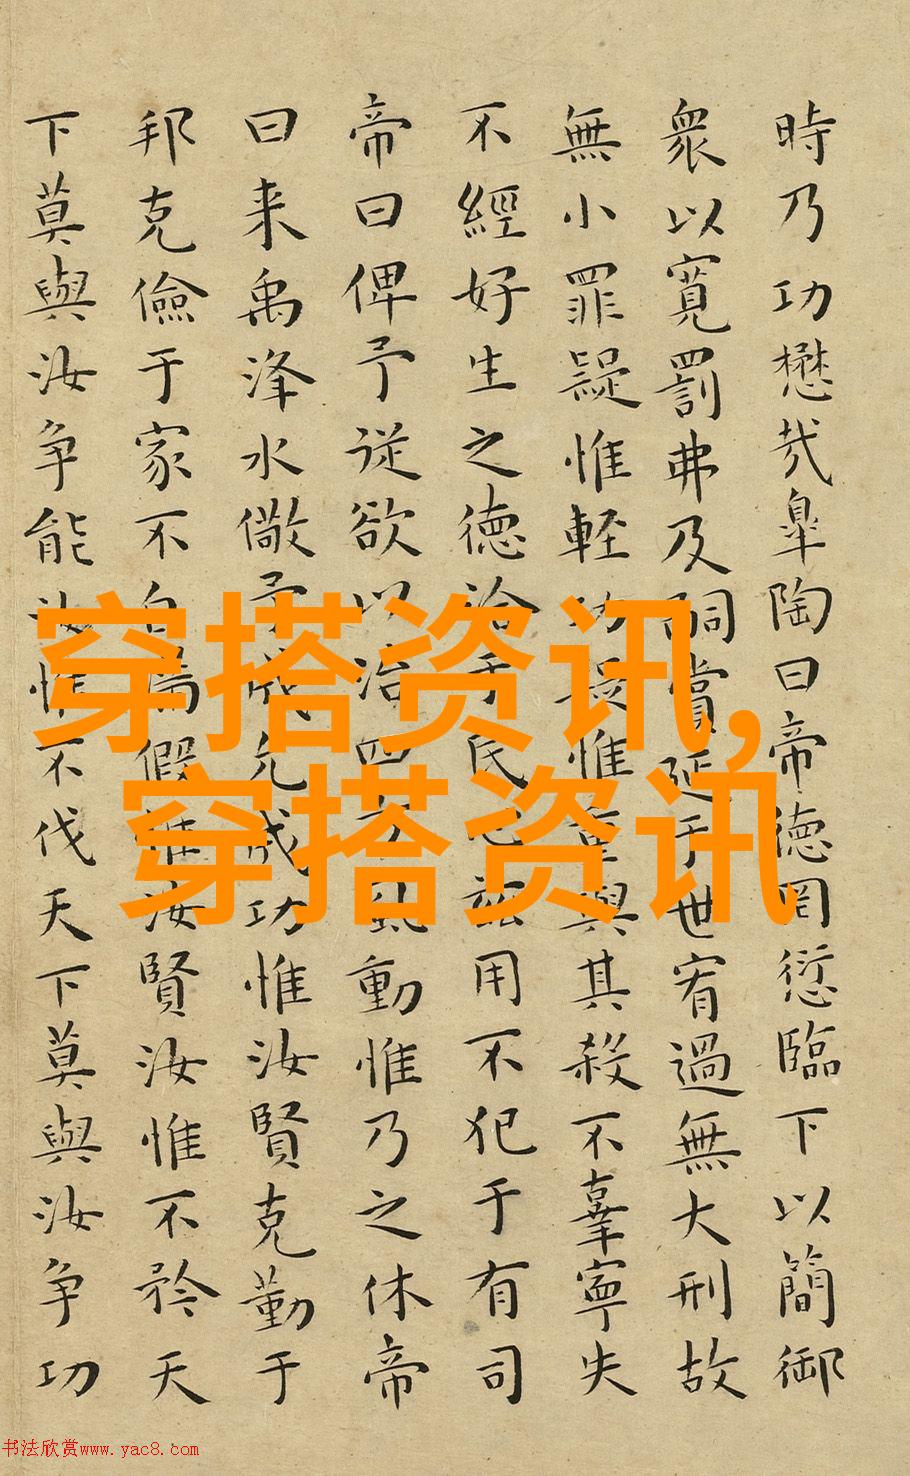 時乃功懋哉皐陶曰帝徳罔愆臨下以簡御
衆以寬罰弗及嗣賞延于世宥過無大刑故
無小罪疑惟軽功疑惟重與其殺不辜寧失
不經好生之徳洽于民心茲用不犯于有司
帝曰俾予従欲以治四方風動惟乃之休帝
曰来禹洚水儆予成允成功惟汝賢克勤于
邦克儉于家不自滿假惟汝賢汝惟不矜天
下莫與汝争能汝惟不伐天下莫與汝争功
穿搭资讯,
穿搭资讯
书法欣赏www.yac8.com